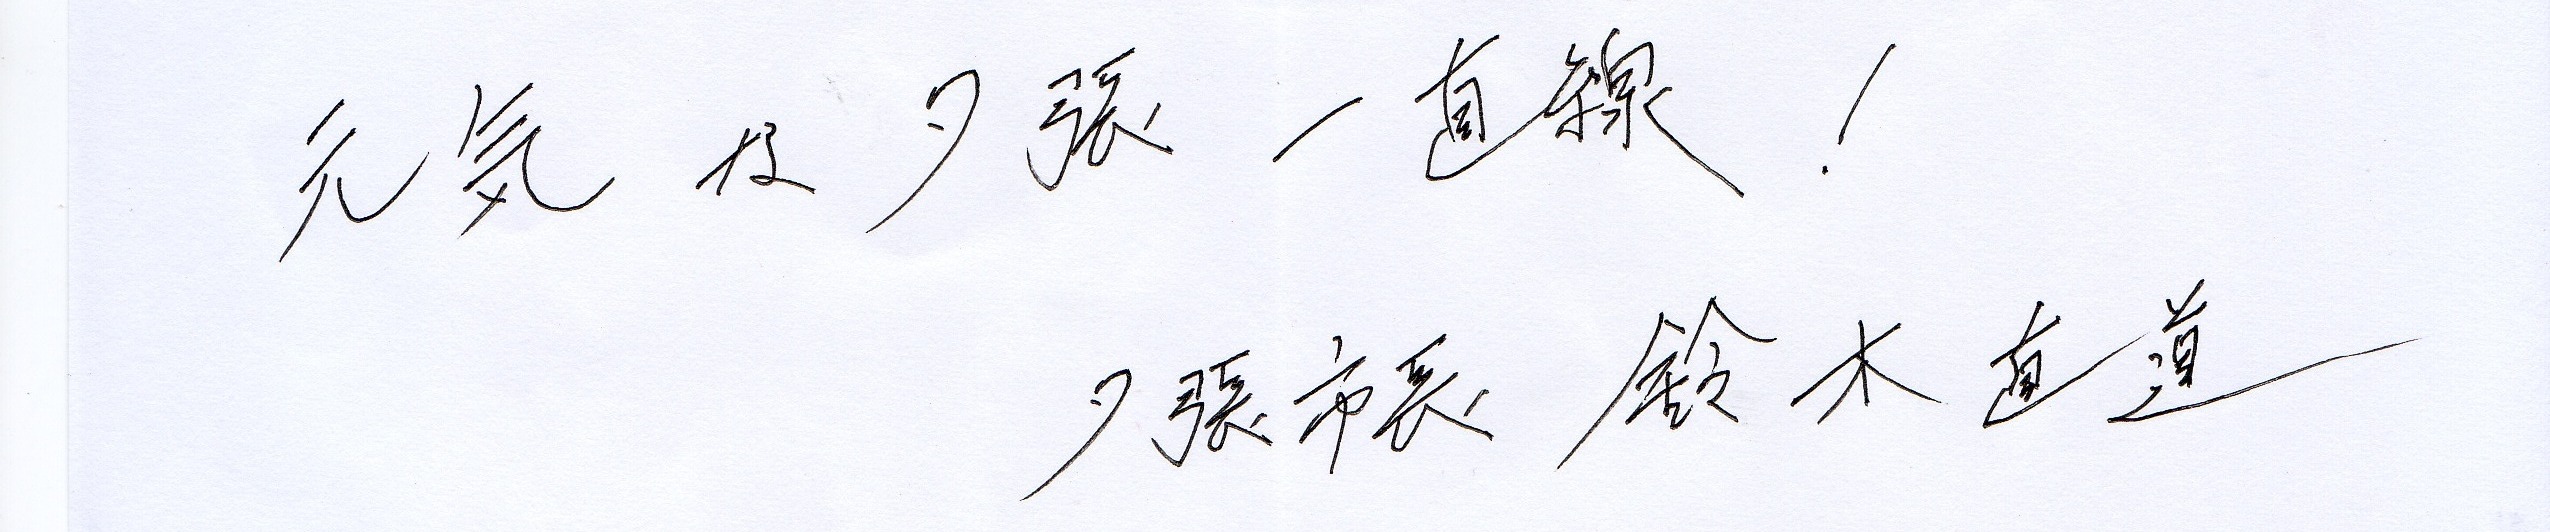 元気な夕張一直線!
夕張市長 鈴木直道